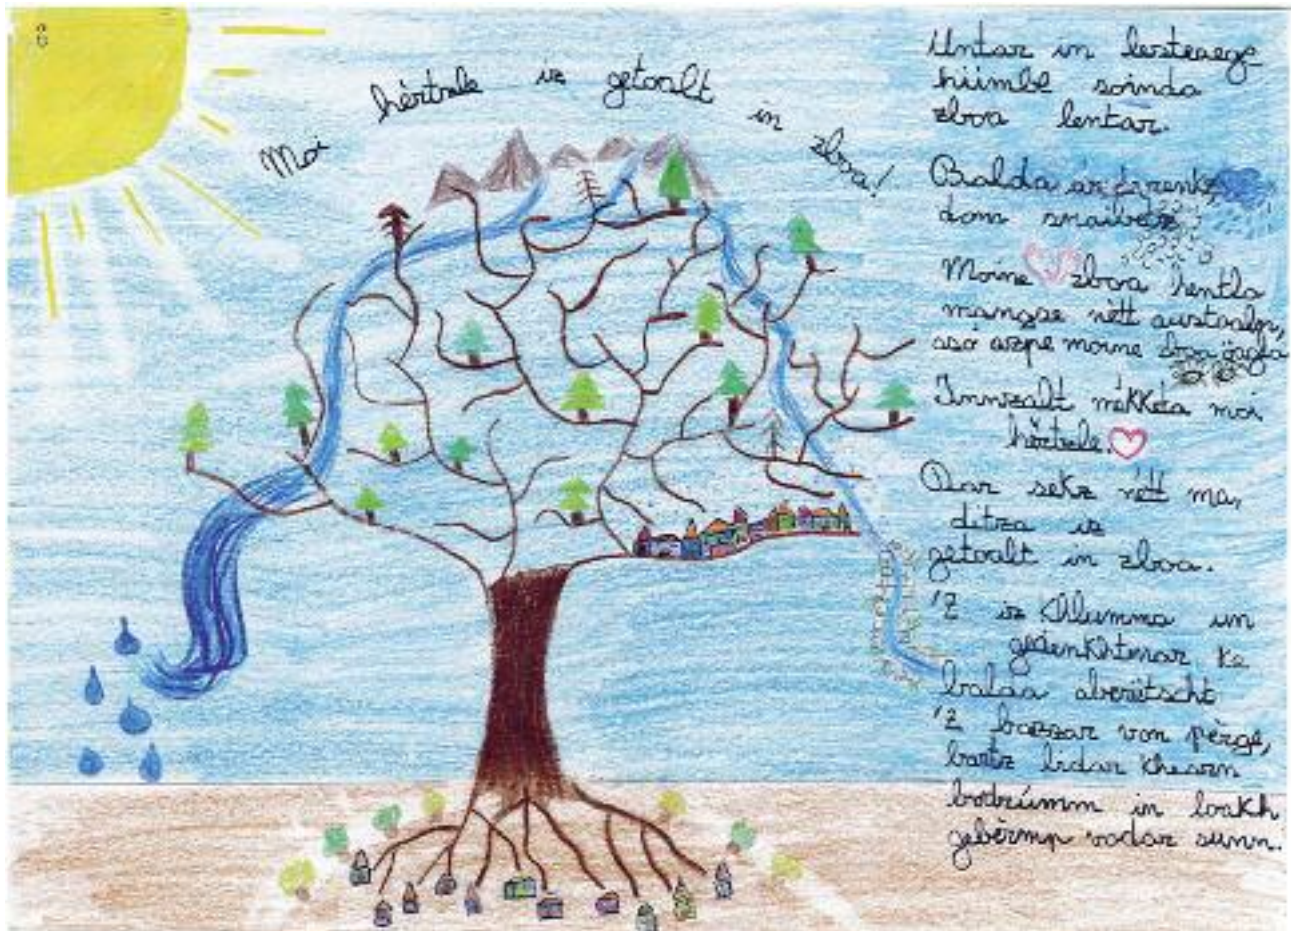 Moi hèrtzle iz getoalt in zboa!
Untar in
hümbl soinda
zboa lentar.
Balda
dom snaibetz
Moine zboa hentla
mangse nètt austoaln,
asó azpe moine zboa oagla
Innzalt rékketa moi
hèrtzle.
Dar sekz nètt ma,
ditza iz
getoalt in zboa.
'Z iz khlumma un
gedenkhtmar ke
balda aberètscht
'z bazzar von pèrge,
bartz bidar khearn
bodrumm in loakh
gebèrmp vodar sunn.